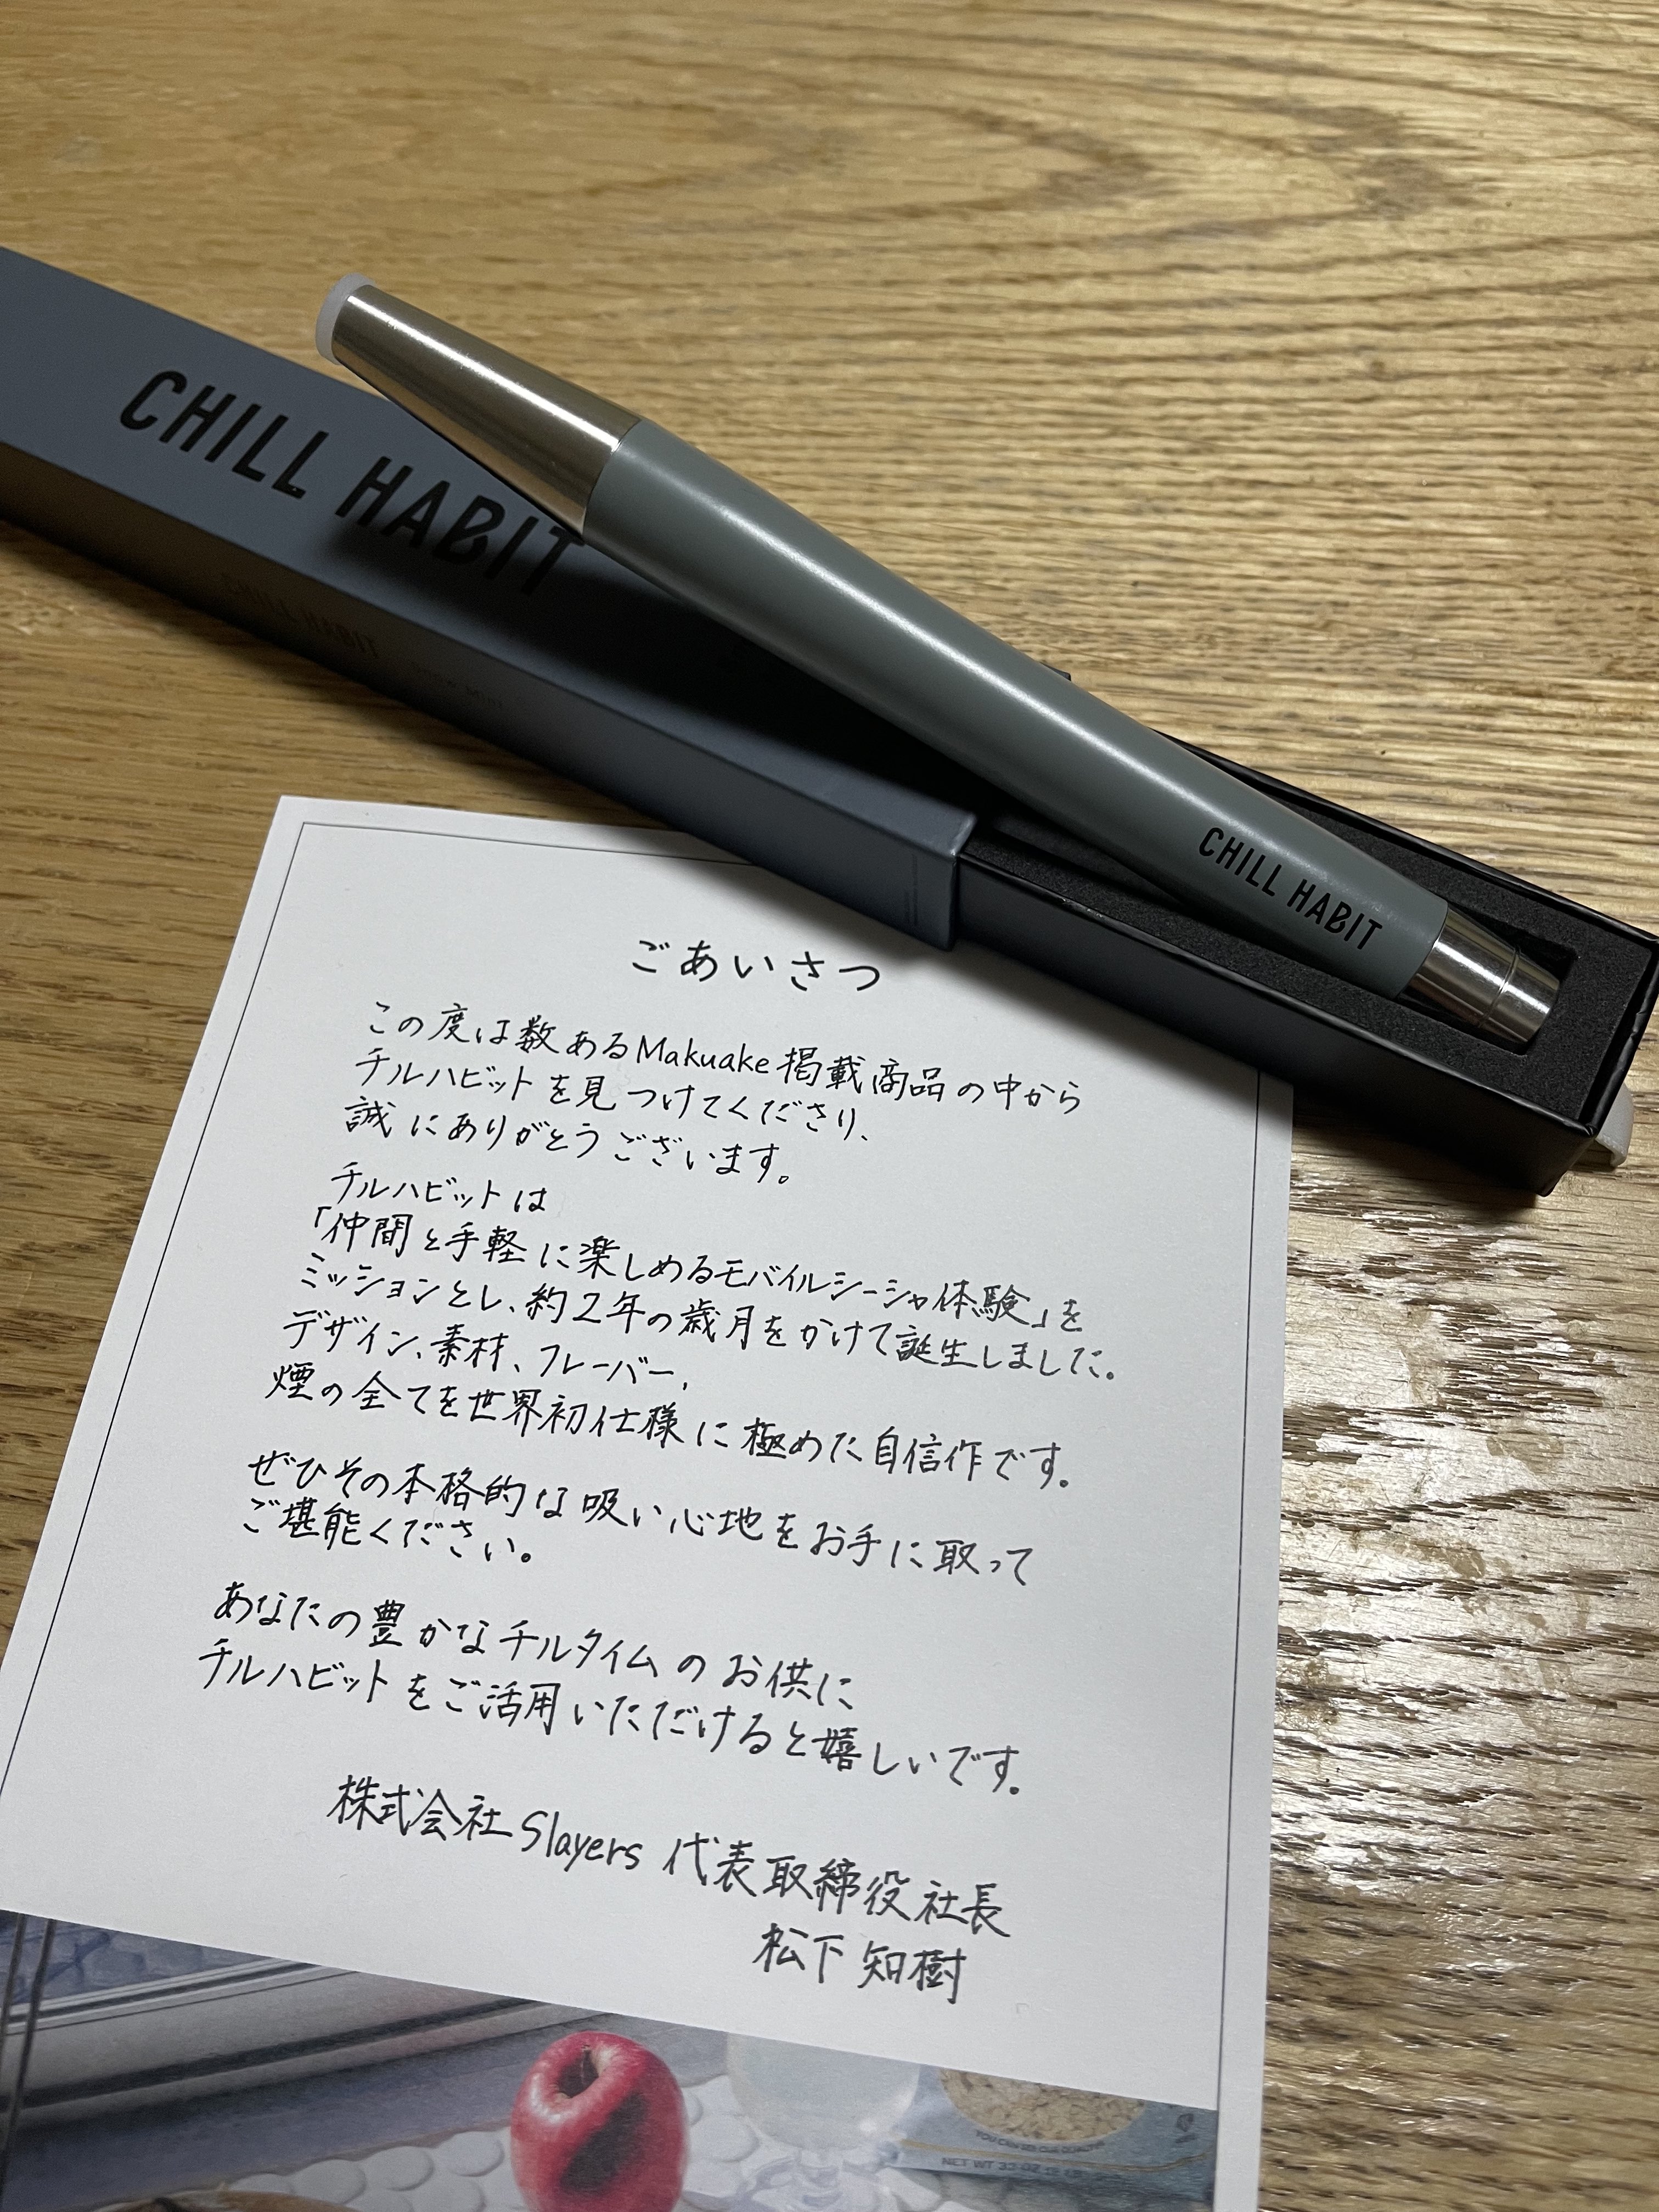 CHILL HABIT
CHILL HABIT
CHILL HABIT
ごあいさつ
この度は数あるMakuake掲載商品の中から
チルハビットを見つけてくださり、
誠にありがとうございます。
チルハビットは
「仲間と手軽に楽しめるモバイルシーシャ体験」を
ミッションとし、約2年の歳月をかけて誕生しました。
デザイン、素材、フレーバー、
煙の全てを世界初仕様に極めた自信作です。
ぜひその本格的な吸い心地をお手に取って
ご堪能ください。
あなたの豊かなチルタイムのお供に
チルハビットをご活用いただけると嬉しいです。
株式会社Slayers 代表取締役社長
松下 知樹
NET WT 32 OZ